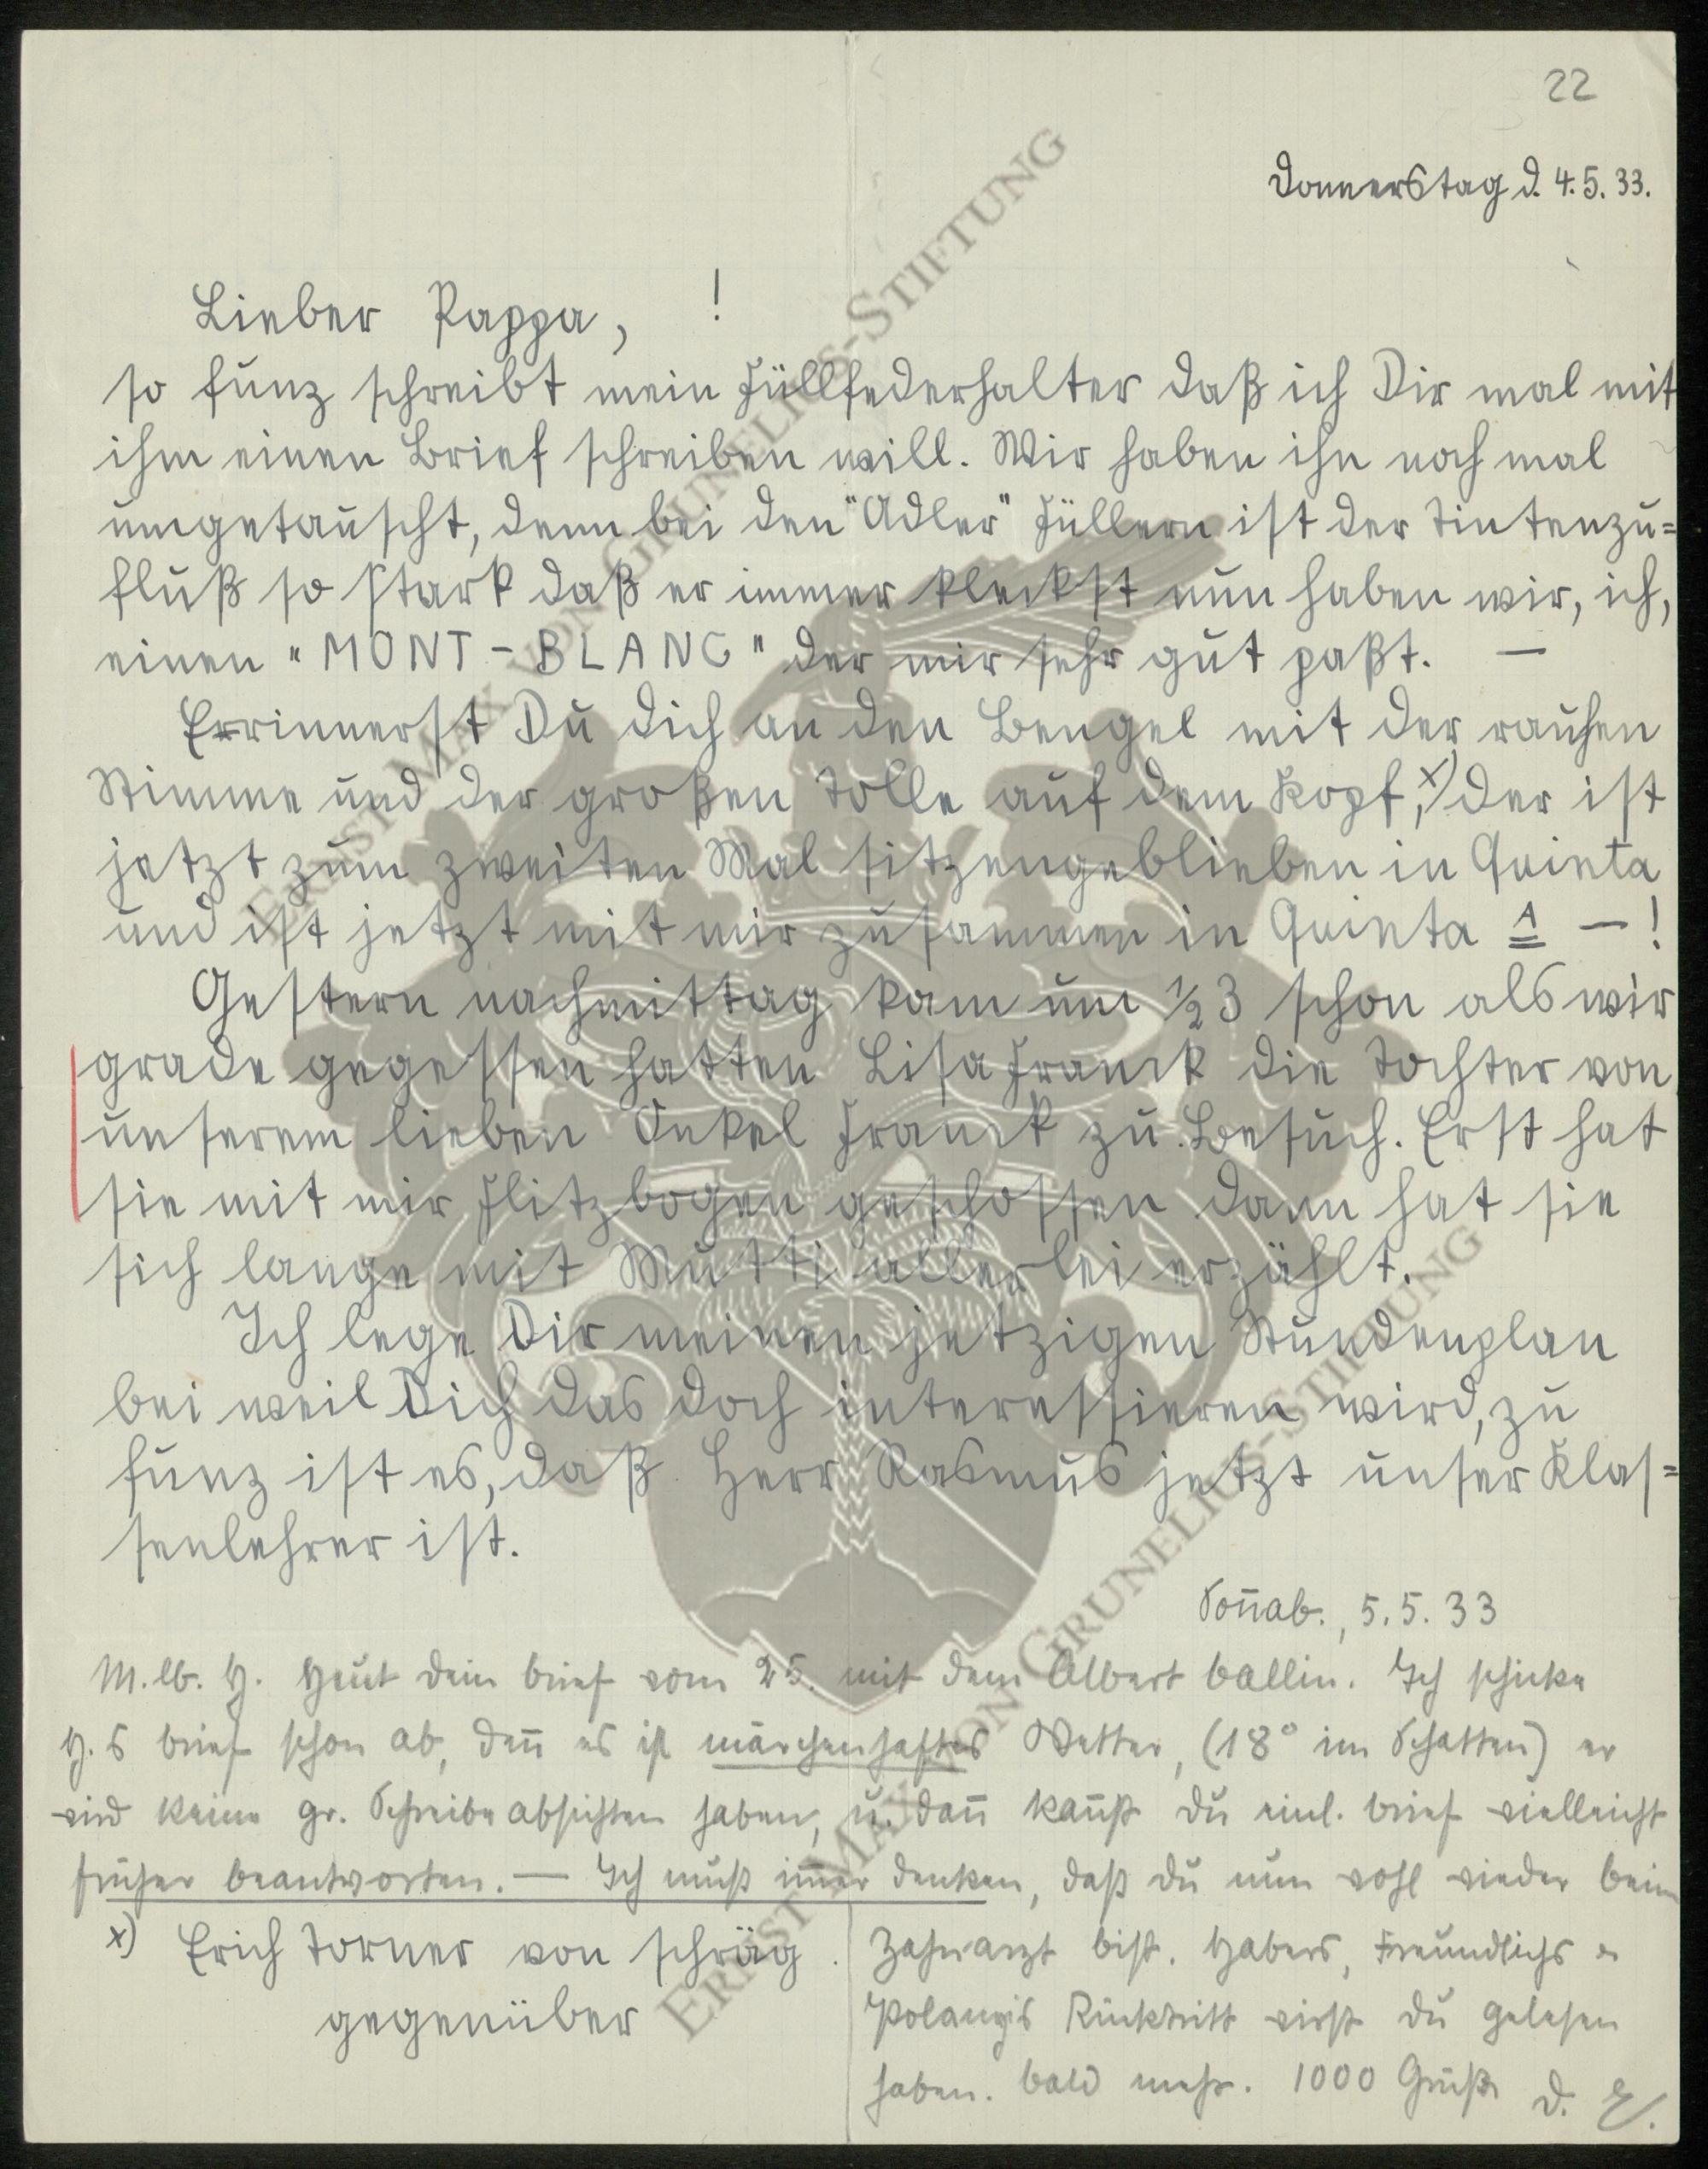 22
Donnerstag d. 4. 5. 33.
Lieber Pappa, !
so funz schreibt mein Füllfederhalter daß ich Dir mal mit
ihm einen Brief schreiben will. Wir haben ihn noch mal
umgetauscht, denn bei den "Adler" Füllern ist der Tintenzu=
fluß so stark daß er immer kleckst nun haben wir, ich,
einen "MONT-BLANC" der mir sehr gut paßt. —
Errinnerst Du dich an den Bengel mit der rauhen
Stimme und der großen Tolle auf dem Kopf, x) der ist
jetzt zum zweiten Mal sitzengeblieben in Quinta
und ist jetzt mit mir zusammen in Quinta A — !
Gestern nachmittag kam um ½3 schon als wir
grade gegessen hatten Lisa Franck die Tochter von
unserem lieben Onkel Franck zu Besuch. Erst hat
sie mit mir Flitzbogen geschossen dann hat sie
sich lange mit Mutti allerlei erzählt.
Ich lege Dir meinen jetzigen Stundenplan
bei weil Dich das doch interessieren wird, zu
funz ist es, daß Herr Rasmus jetzt unser Klas=
senlehrer ist.
Sonnab., 5. 5. 33
M. lb. H. Heut dein brief vom 25. mit dem Albert ballin. Ich schicke
H.s brief schon ab, denn es ist märchenhaftes Wetter, (18° im Schatten) er
wird keine gr. Schreibeabsichten haben, u. dann kannst du einl. brief vielleicht
früher beantworten. — Ich muß immer denken, daß du nun wohl wieder beim
x) Erich Torner von schräg
gegenüber
Zahnarzt bist. Habers, Freundlichs u
Polanyis Rücktritt wirst du gelesen
haben. bald mehr. 1000 Grüße d. E.
ERNST MAX VON GRUNELIUS-STIFTUNG
ERNST MAX VON GRUNELIUS-STIFTUNG